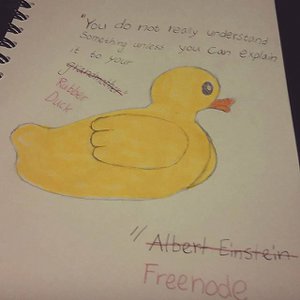 "You do not really understand
Something unless you can explain
it to your
grandmother"
Rubber
Duck
// Albert Einstein
Freenode